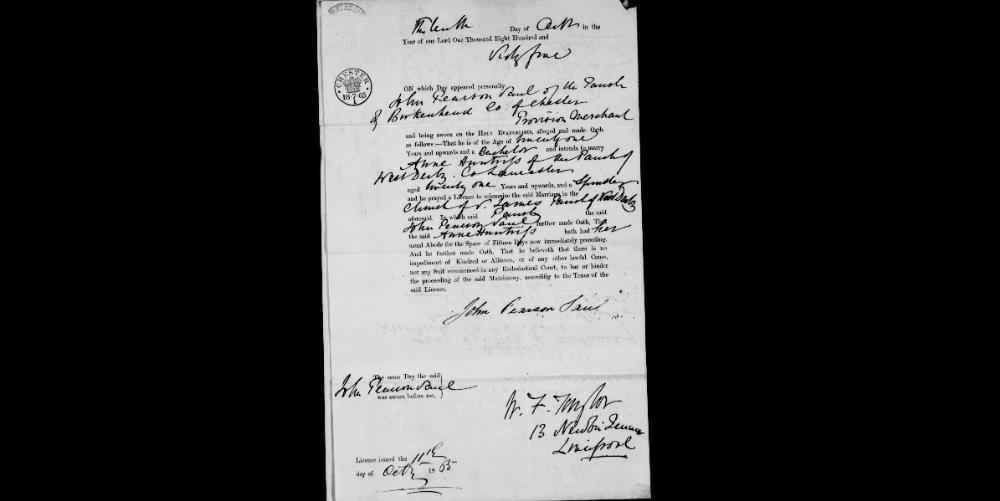 The tenth Day of Octr in the
Year of our Lord One Thousand Eight Hundred and
Sixty five
CHESTER
18·7·65
1
ON which Day appeared personally
John Pearson Saul of the Parish
of Birkenhead Co. of Chester
Provision Merchant
and being sworn on the HOLY EVANGELISTS, alleged and made Oath
as follows:—That he is of the Age of twenty one
Years and upwards and a Bachelor and intends to marry
Anne Huntriss of the Parish of
West Derby. Co Lancaster
aged twenty one Years and upwards, and a Spinster
and he prayed a Licence to solemnize the said Marriage in the
Church of St. James Parish of West Derby
aforesaid. In which said Parish the said
John Pearson Saul further made Oath, That
the said Anne Huntriss hath had her
usual Abode for the Space of Fifteen Days now immediately preceding.
And he further made Oath, That he believeth that there is no
impediment of Kindred or Alliance, or of any other lawful Cause,
nor any Suit commenced in any Ecclesiastical Court, to bar or hinder
the proceeding of the said Matrimony, according to the Tenor of the
said Licence.
John Pearson Saul
The same Day the said
John Pearson Saul
was sworn before me,
W. F. Taylor
13
Liverpool
Licence issued the 11th
day of Octr 1865